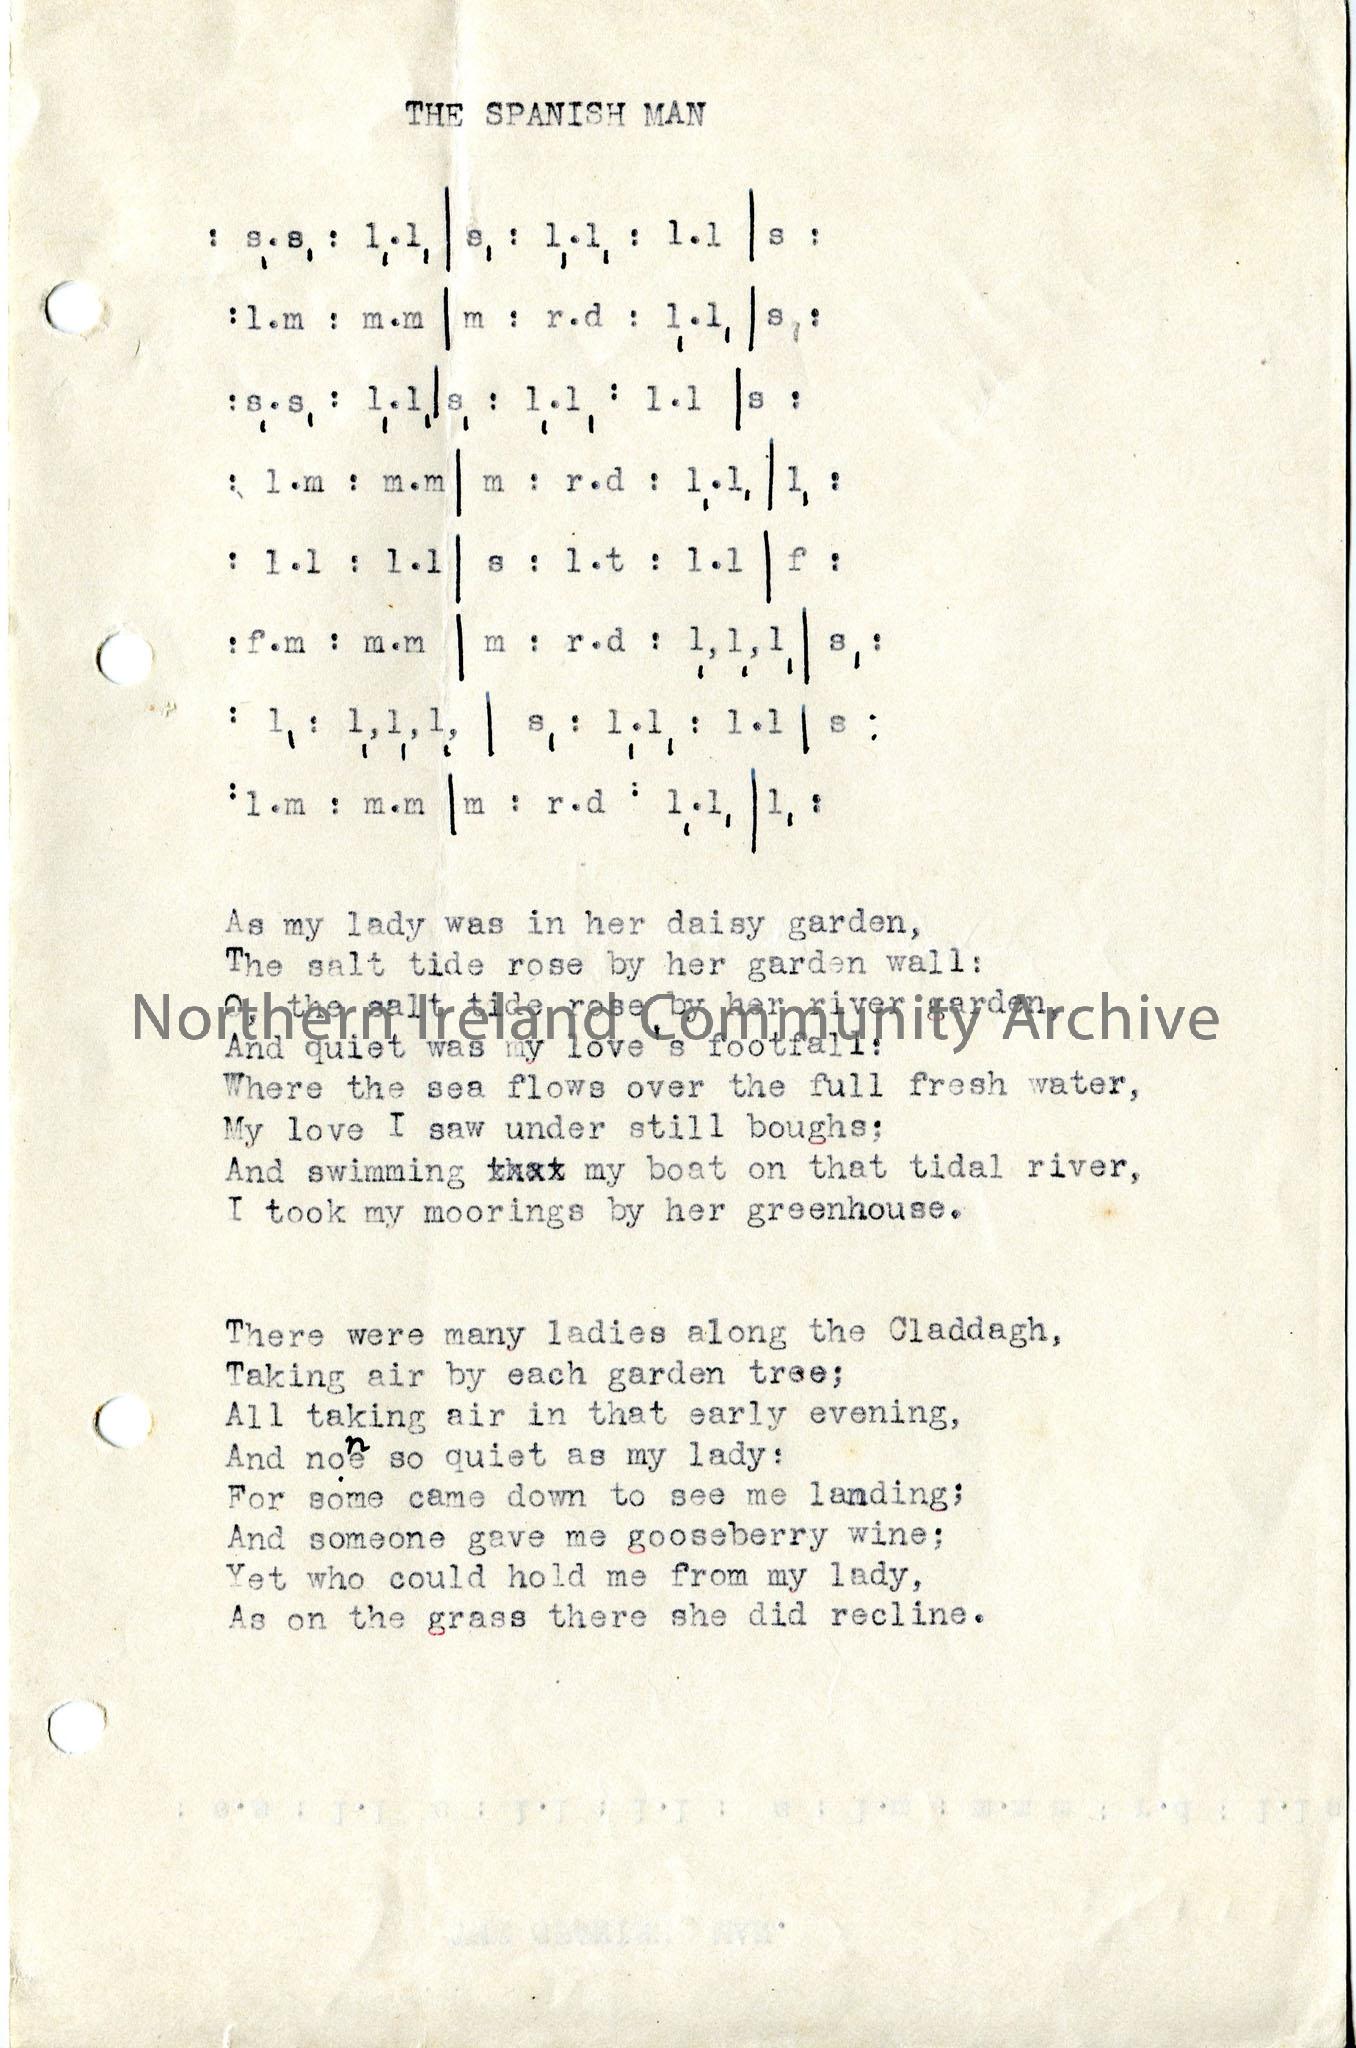 THE SPANISH MAN
: s,.s, : l,.l, | s, : l,.l, : l.l | s :
:l.m : m.m | m : r.d : l,.l, | s, :
:s,.s, : l,.l, | s, : l,.l, : l.l | s :
: l.m : m.m | m : r.d : l,.l, | l, :
: l.l : l.l | s : l.t : l.l | f :
:f.m : m.m | m : r.d : l,,l,,l, | s, :
: l, : l,,l,,l,, | s, : l,.l, : l.l | s :
:l.m : m.m | m : r.d : l,.l, | l, :
As my lady was in her daisy garden,
The salt tide rose by her garden wall:
O, the salt tide rose by her river garden,
And quiet was my love's footfall:
Where the sea flows over the full fresh water,
My love I saw under still boughs;
And swimming my boat on that tidal river,
I took my moorings by her greenhouse.
There were many ladies along the Claddagh,
Taking air by each garden tree;
All taking air in that early evening,
And none so quiet as my lady:
For some came down to see me landing;
And someone gave me gooseberry wine;
Yet who could hold me from my lady,
As on the grass there she did recline.
Northern Ireland Community Archive